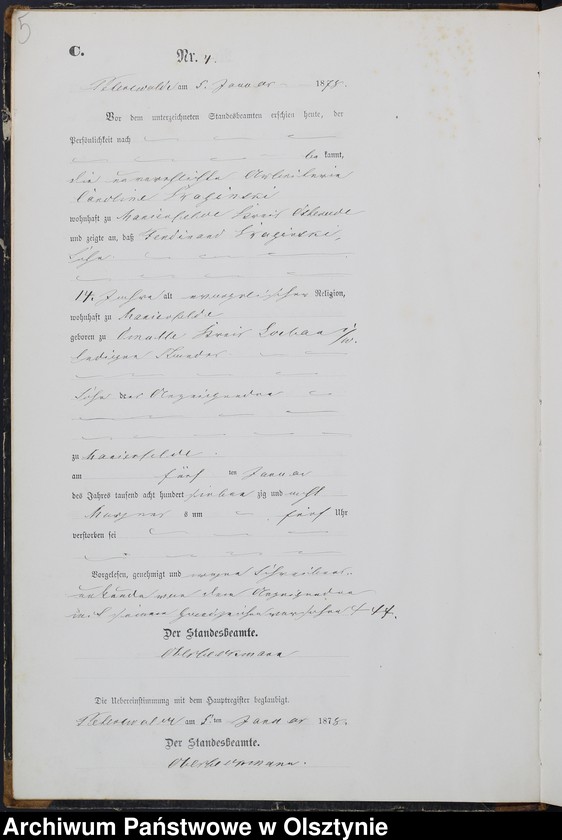 5
C.
Nr. 4.
am 5. Januar 1878.
Vor dem unterzeichneten Standesbeamten erschien heute, der
Persönlichkeit nach
be kannt,
die unverehelichte Arbeiterin
Caroline
wohnhaft zu Marienfelde Kreis Osterode
und zeigte an, daß Ferdinand
Sohn
14. Jahre alt evangelischer Religion,
wohnhaft zu Marienfelde
geboren zu Kreis Loebau i/W.
ledigen Standes
Sohn der Anzeigenden
zu Marienfelde.
am fünf ten Januar
des Jahres tausend acht hundert sieben zig und acht
Morgens um fünf Uhr
verstorben sei
Vorgelesen, genehmigt und wegen Schreibens-
unkunde von dem Anzeigenden
mit seinem Handzeichen versehen +++.
Der Standesbeamte.
Die Uebereinstimmung mit dem Hauptregister beglaubigt.
am 5. ten Januar 1878.
Der Standesbeamte.
Archiwum Państwowe w Olsztynie